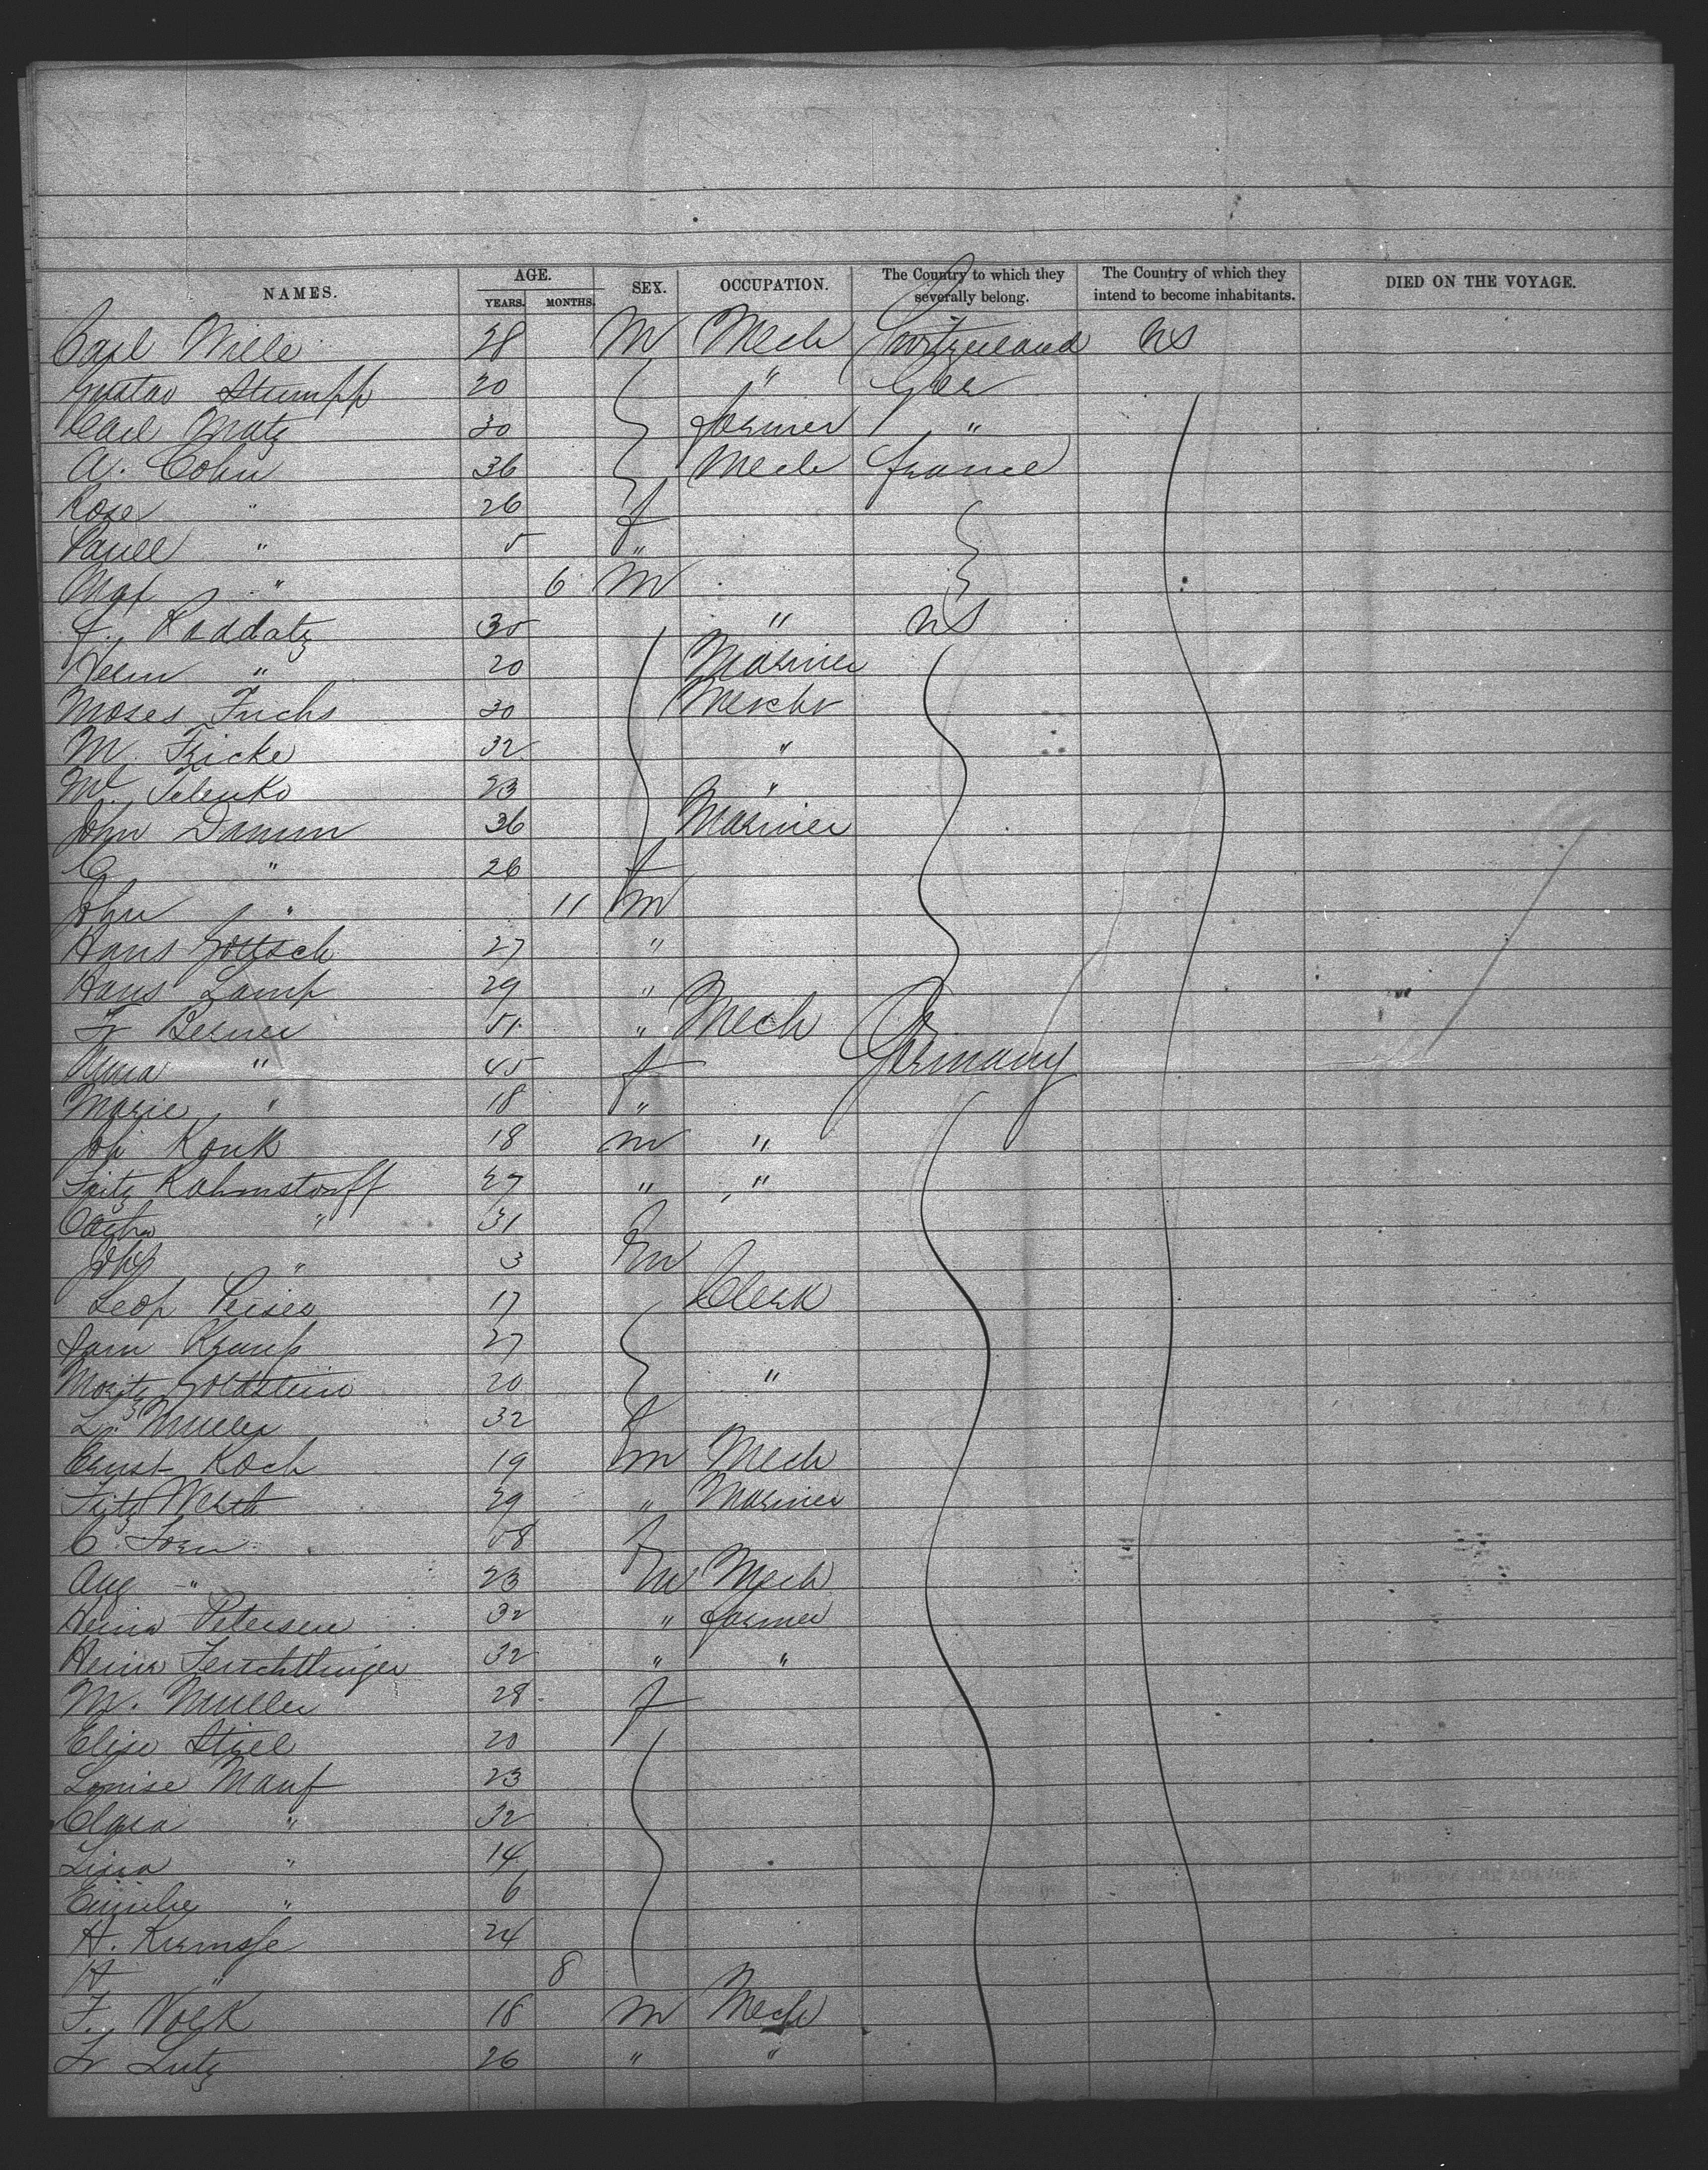 NAMES. AGE. YEARS. MONTHS. SEX. OCCUPATION. The Country to which they severally belong. The Country of which they intend to become inhabitants. DIED ON THE VOYAGE.
Carl Wille 28 M Mech Switzerland US
Gustav Stumpp 20 " Ger
Carl Matz 30 farmer "
A. Cohn 36 Mech France
Rose " 26 f
" 5 "
Max " 6 M
f. Raddatz 30 " US
" 20 Mariner
Moses Fuchs 30 Mercht
M. Fricke 32 "
M. 23 "
John Damm 36 Mariner
C " 26 f
John " 11 m
Hans Gottsch 27 "
Hans Lamp 29 "
Fr Berner 51 " Mech Germany
Anna " 45 f
Marie " 18 "
Joh Konk 18 m "
Fritz Kahmstorff 27 " "
" 31 f
" 3 m
Leop Peiser 17 Clerk
Sam 27
Moritz Goldstein 20 "
L. Muller 32 f
Ernst Koch 19 m Mech
Fritz 29 " Mariner
C. 58 f
Aug " 23 m Mech
Heinr Petersen 32 " farmer
Heinr Feuchtinger 32 " "
M. Muller 28 f
Elise Stiel 20
Louise Manf 23
Clara " 32
Lina " 14
Emilie " 6
H. 24
H " 8
F. Volk 18 m Mech
Fr Lutz 26 " "